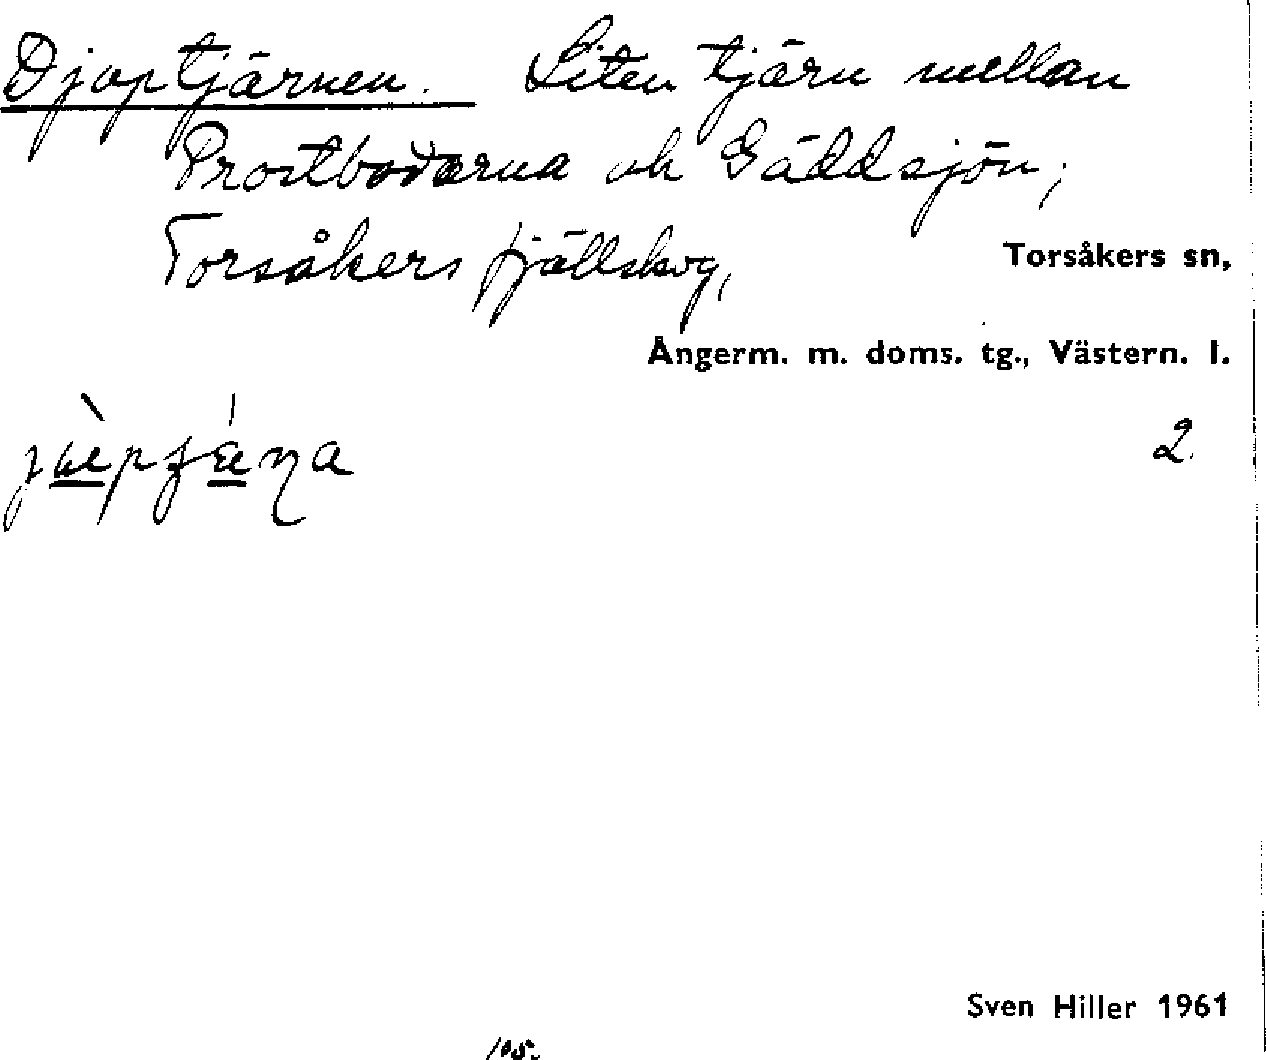 Djuptjärnen. Liten tjärn mellan
Prostbodarna och Gäddsjön,
Torsåkers fjällskog,
Torsåkers sn,
Ångerm. m. doms. tg., Västern. l.
2.
Sven Hiller 1961